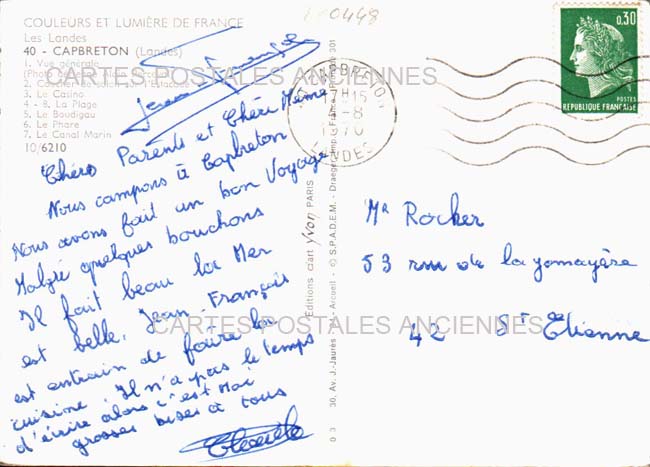 COULEURS ET LUMIÈRE DE FRANCE
Les Landes
40 - CAPBRETON (Landes)
1. Vue générale
(Photo Alain
2.
3. Le Casino
4 - 8. La Plage
5. Le Boudigau
6. Le Phare
7. Le Canal Marin
10/6210
0448
Jean François
CARTES POSTALES ANCIENNES
Chers Parents et Chère Mémé
Nous campons à Capbreton
Nous avons fait un bon Voyage
Malgré quelques bouchons
Il fait beau la Mer
est belle. Jean-François
est entrain de faire la
cuisine. Il n'a pas le temps
d'écrire alors c'est Moi
grosses bises à tous
CARTES POSTALES ANCIENNES
Editions d'art Yvon PARIS
30, Av. J.-Jaurès - Arcueil - © S.P.A.D.E.M. - Draeger Imp.
CAPBRETON
7H15
-8
1970
LANDES
0,30
POSTES
REPUBLIQUE FRANÇAISE
Mr Rocher
53 rue de la yomayère
42 St Etienne